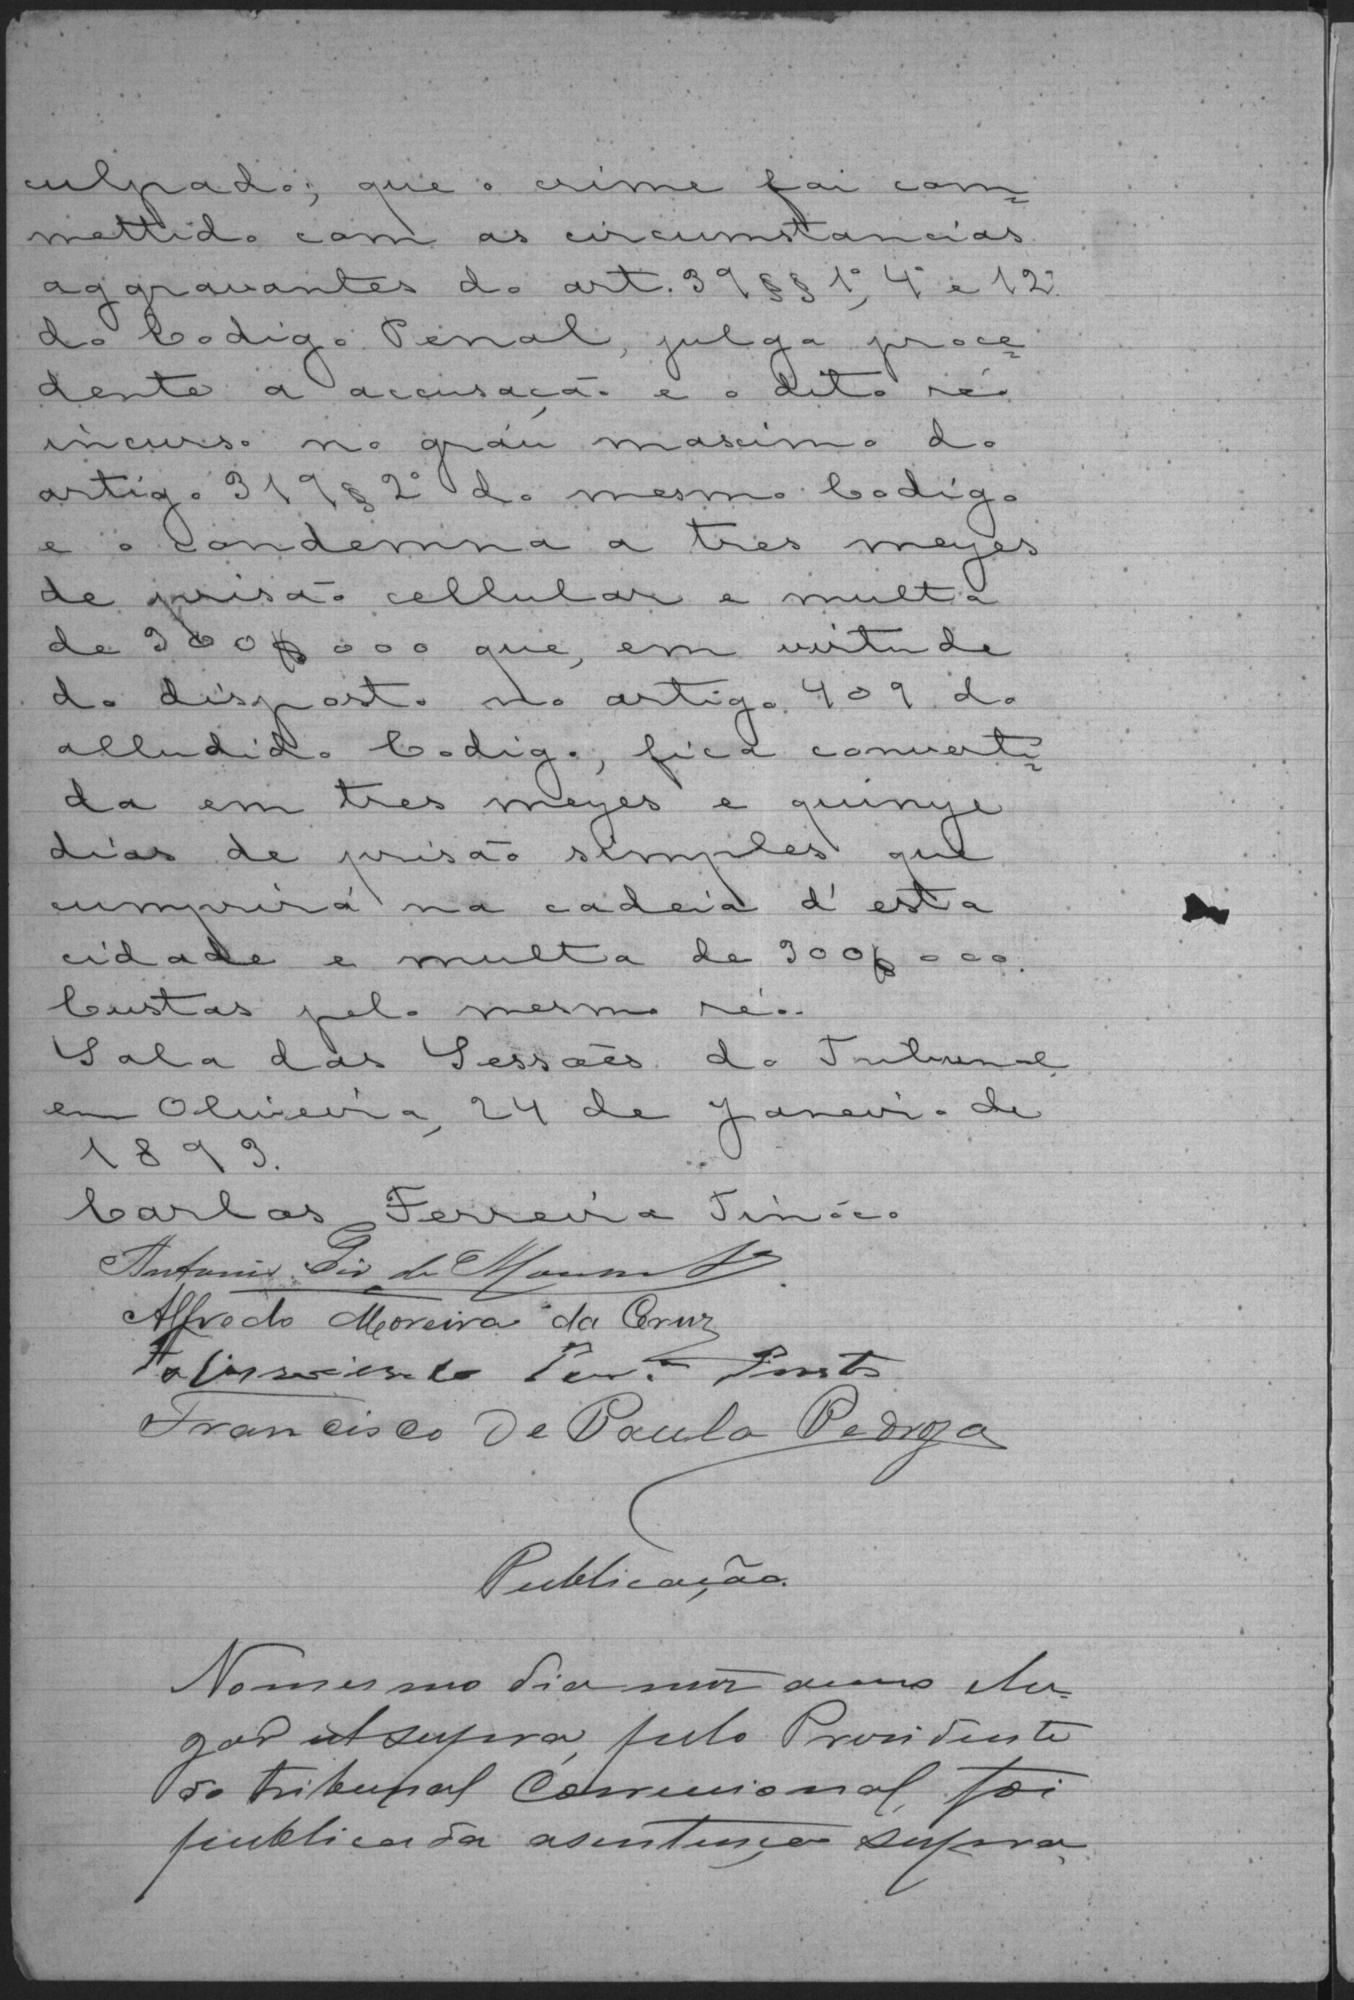 culpado; que o crime foi com=
mettido com as circumstancias
aggravantes do art. 39 §§ 1º, 4º e 12º
do Codigo Penal, julga proce=
dente a accusação e o dito réo
incurso no gráu maximo do
artigo 319 § 2º do mesmo Codigo
e o condemna a tres mezes
de prisão cellular e multa
de 300$000 que, em virtude
do disposto no artigo 409 do
alludido Codigo, fica converti=
da em tres mezes e quinze
dias de prisão simples que
cumprirá na cadeia d'esta
cidade e multa de 300$000.
Custas pelo mesmo réo.
Sala das Sessões do Tribunal
em Oliveira, 24 de Janeiro de
1893.
Carlos Ferreira Tinôco
Antonio de
Alfredo Moreira da Cruz
Francisco de Paula Pedroza
Publicação.
No mesmo dia mez anno e lu-
gar ut supra, pelo Presidente
do tribunal Correcional, foi
publicada a sentença supra,